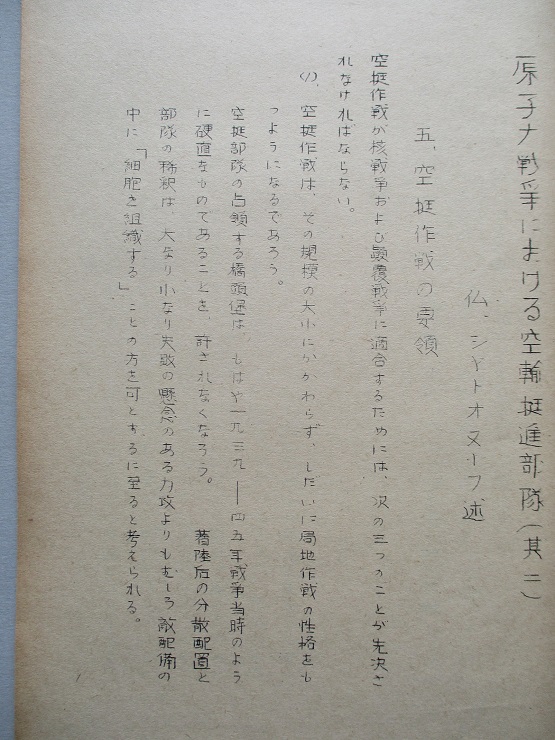 原子力戦争における空輸挺進部隊（其二）
仏、シャトオヌーフ述
五、空挺作戦の要領
空挺作戦が核戦争および顛覆戦争に適合するためには、次の三つのことが先決さ
れなければならない。
(1)、空挺作戦は、その規模の大小にかかわらず、しだいに局地作戦の性格をも
つようになるであろう。
空挺部隊の占領する橋頭堡は、もはや一九三九——四五年戦争当時のよう
に硬直なものであることを、許されなくなろう。　着陸后の分散配置と
部隊の稀釈は、大なり小なり失敗の懸念のある力攻よりもむしろ敵配備の
中に「細胞を組織する」ことの方を可とするに至ると考えられる。